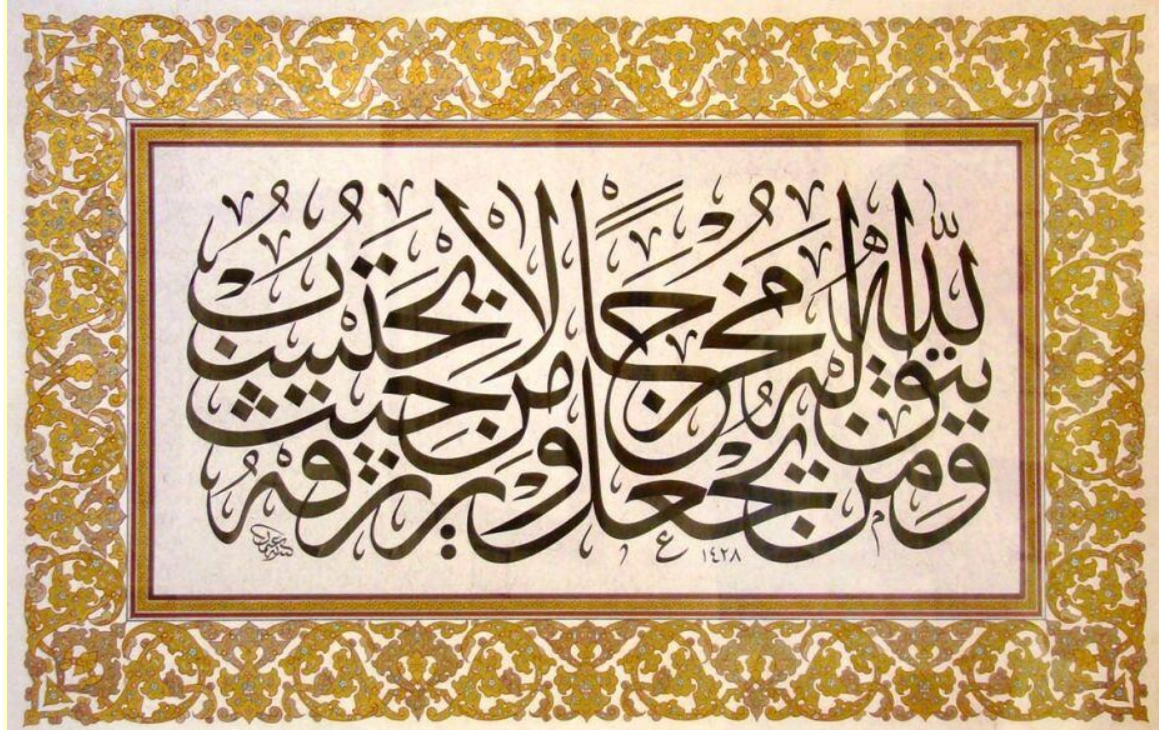 ومن يتق الله يجعل له مخرجا
ويرزقه من حيث لا يحتسب
١٤٢٨